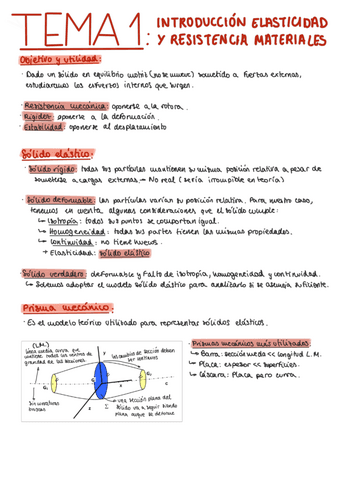 TEMA 1: INTRODUCCIÓN ELASTICIDAD
Y RESISTENCIA MATERIALES
Objetivo y utilidad:
· Dado un sólido en equilibrio estático (no se mueve) sometido a fuerzas externas,
estudiaremos los esfuerzos internos que surgen.
· Resistencia mecánica: oponerse a la rotura.
· Rigidez: oponerse a la deformación.
· Estabilidad: oponerse al desplazamiento
Sólido elástico:
· Sólido rígido: todas sus partículas mantienen su misma posición relativa a pesar de
someterse a cargas externas → No real (sería irrompible en teoría)
· Sólido deformable: las partículas varían su posición relativa. Para nuestro caso,
tenemos en cuenta algunas consideraciones que el sólido cumple:
↳ Isotropía: todos sus puntos se comportan igual.
↳ Homogeneidad: todas sus partes tienen las mismas propiedades.
↳ Continuidad: no tiene huecos.
+ Elasticidad: sólido elástico
· Sólido verdadero: deformable y falto de isotropía, homogeneidad y continuidad.
↳ Solemos adoptar el modelo sólido elástico para analizarlo si se asemeja suficiente.
Prisma mecánico:
· Es el modelo teórico utilizado para representar sólidos elásticos.
(L.M.)
línea media curva que
contiene todos los centros de
gravedad de las secciones
los cambios de sección deben
ser continuos
Sin curvaturas
bruscas
Σ una sección plana del
sólido va a seguir siendo
plana aunque se deforme
· Prismas mecánicos más utilizados:
↳ Barra: sección media << longitud L.M.
↳ Placa: espesor << superficies.
↳ Cáscara: Placa pero curva.